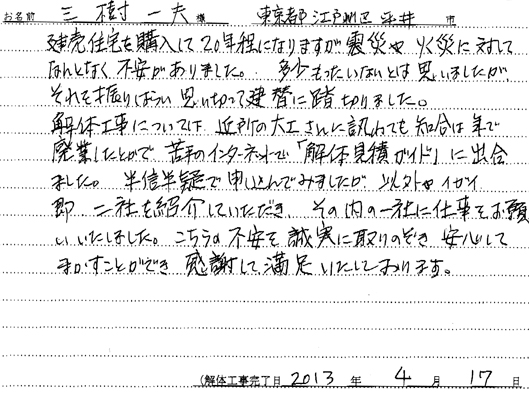 お名前 三樹 一夫 様 東京都 江戸川区 平井 市
建売住宅を購入して20年程になりますが震災や火災に対して
なんとなく不安がありました。 多少もったいないとは思いましたが、
それを振りはらい思い切って建替に踏切りました。
解体工事については近所の大工さんに訊ねても知合は軍で
廃業したとかで 苦手のインターネットで「解体見積ガイド」に出合
ました。 半信半疑で申し込んでみましたが 以外や イガイ
即 二社を紹介していただき、その内の一社に仕事をお願
いいたしました。こちらの不安を誠実に取りのぞき 安心して
まかすことができ 感謝して満足いたしております。
(解体工事完了日 2013 年 4 月 17 日